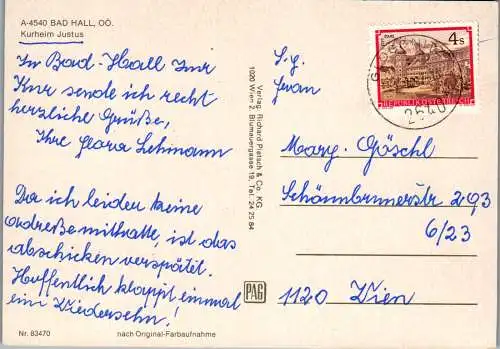 A-4540 BAD HALL, OÖ.
Kurheim Justus
In Bad-Hall zur
Kur sende ich recht
herzliche Grüße,
Ihre Flora Lehmann
Da ich leider keine
Adreße mithatte, ist das
abschicken verspätet.
Hoffentlich klappt einmal
ein Wiedersehn!
Nr. 83470
nach Original-Farbaufnahme
Verlag: Richard Pietsch & Co. KG
1020 Wien 2, Blumauergasse 19, Tel. 24 25 84
PAG
4s
REPUBLIK ÖSTERREICH
2540
S.g.
Frau
Marg. Göschl
Schönbrunnerstr 293
6/23
1120 Wien